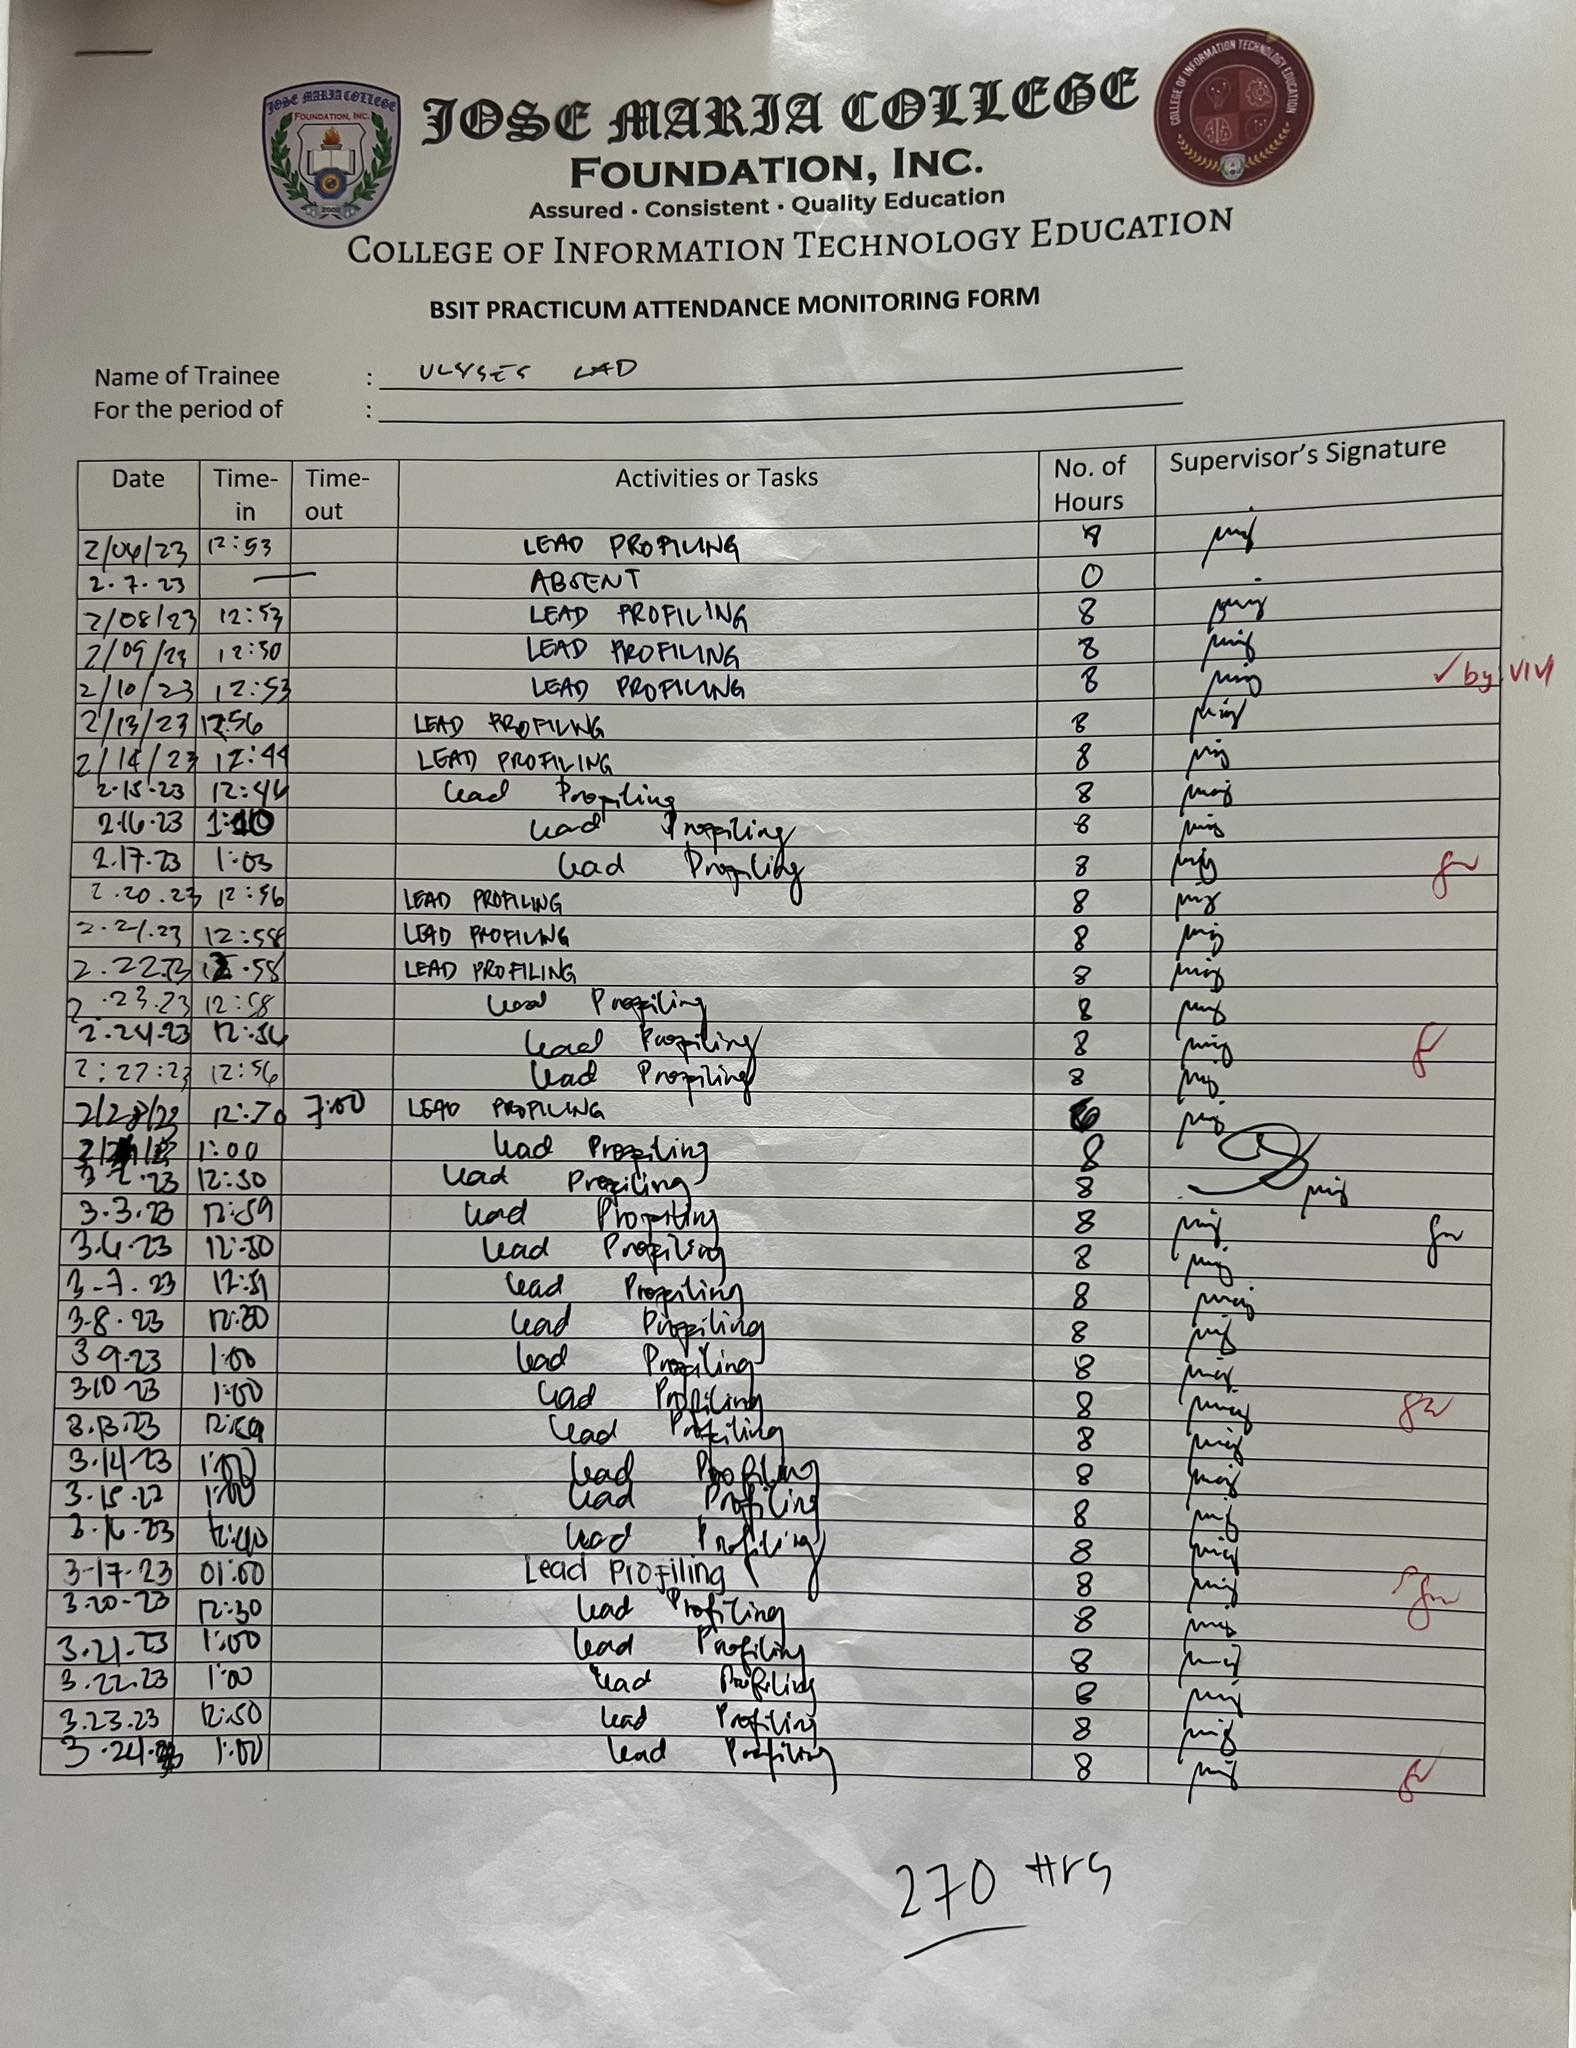 JOSE MARIA COLLEGE
FOUNDATION, INC.
2002
COLLEGE OF INFORMATION TECHNOLOGY EDUCATION
JOSE MARIA COLLEGE
FOUNDATION, INC.
Assured · Consistent · Quality Education
COLLEGE OF INFORMATION TECHNOLOGY EDUCATION
BSIT PRACTICUM ATTENDANCE MONITORING FORM
Name of Trainee : ULYSES LAD
For the period of :
Date Time-in Time-out Activities or Tasks No. of Hours Supervisor's Signature
2/06/23 12:53 LEAD PROFILING 8
2.7.23 — ABSENT 0
2/08/23 12:53 LEAD PROFILING 8
2/09/23 12:50 LEAD PROFILING 8
2/10/23 12:53 LEAD PROFILING 8 ✓ by VIVI
2/13/23 12:56 LEAD PROFILING 8
2/14/23 12:44 LEAD PROFILING 8
2.15.23 12:46 Lead Profiling 8
2.16.23 Lead Profiling 8
2.17.23 1:03 Lead Profiling 8
2.20.23 12:56 LEAD PROFILING 8
2.21.23 12:58 LEAD PROFILING 8
2.22.23 12:58 LEAD PROFILING 8
2.23.23 12:58 Lead Profiling 8
2.24.23 12:56 Lead Profiling 8
2:27:23 12:56 Lead Profiling 8
2/28/23 7:00 LEAD PROFILING 6
1:00 Lead Profiling 8
3.2.23 12:50 Lead Profiling 8
3.3.23 12:59 Lead Profiling 8
3.6.23 12:50 Lead Profiling 8
3-7.23 12:51 Lead Profiling 8
3-8.23 12:30 Lead Profiling 8
3 9.23 1:00 Lead Profiling 8
3.10 23 1:00 Lead Profiling 8
3.13.23 12:59 Lead Profiling 8
3.14 23 1:00 Lead Profiling 8
3.15.22 1:00 Lead Profiling 8
3.16.23 12:40 Lead Profiling 8
3-17-23 01:00 Lead Profiling 8
3.20-23 12:30 Lead Profiling 8
3.21.23 1:00 Lead Profiling 8
3.22.23 1:00 Lead Profiling 8
3.23.23 12:50 Lead Profiling 8
3.24.23 1:00 Lead Profiling 8
270 Hrs